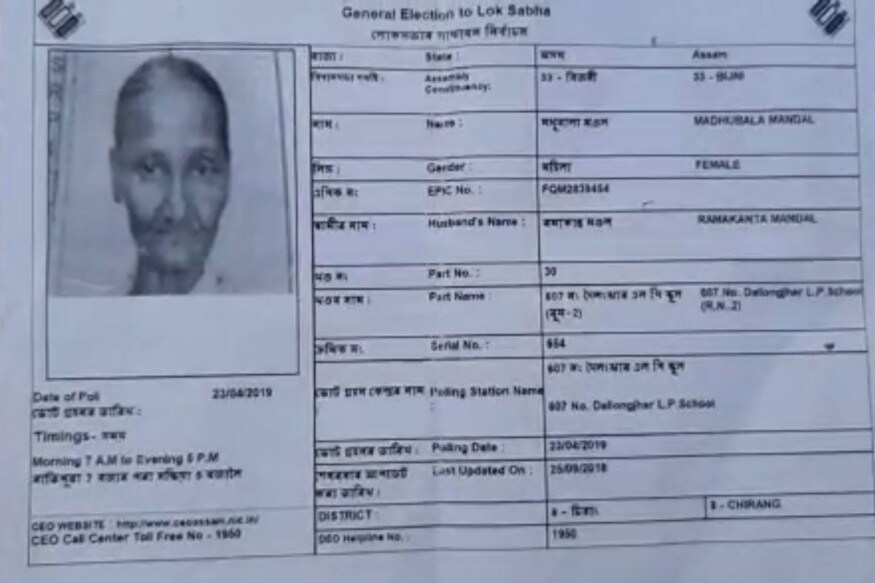 General Election to Lok Sabha
লোকসভাৰ সাধাৰণ নিৰ্বাচন
ৰাজ্য : State : অসম Assam
Assembly Constituency: 33 - বিজনী 33 - BIJNI
নাম : Name : মধুমালা মণ্ডল MADHUBALA MANDAL
লিংগ : Gender : মহিলা FEMALE
EPIC No. : FQM2839454
স্বামীৰ নাম : Husband's Name : ৰমাকান্ত মণ্ডল RAMAKANTA MANDAL
Part No. : 30
Part Name : 607 নং এল পি স্কুল 607 No. Dallongjhar L.P.School
(R.N..2)
Serial No. : 654
607 নং এল পি স্কুল
ভোট গ্ৰহণ কেন্দ্ৰৰ নাম Polling Station Name :
607 No. Dallongjhar L.P.School
ভোট গ্ৰহণৰ তাৰিখ : Polling Date : 23/04/2019
Last Updated On : 25/09/2018
DISTRICT : 8 - চিৰাং 8 - CHIRANG
CEO Helpline No. : 1950
Date of Poll 23/04/2019
ভোট গ্ৰহণৰ তাৰিখ :
Timings- সময়
Morning 7 A.M to Evening 5 P.M
CEO WEBSITE : http://www.ceoassam.nic.in/
CEO Call Center Toll Free No - 1950